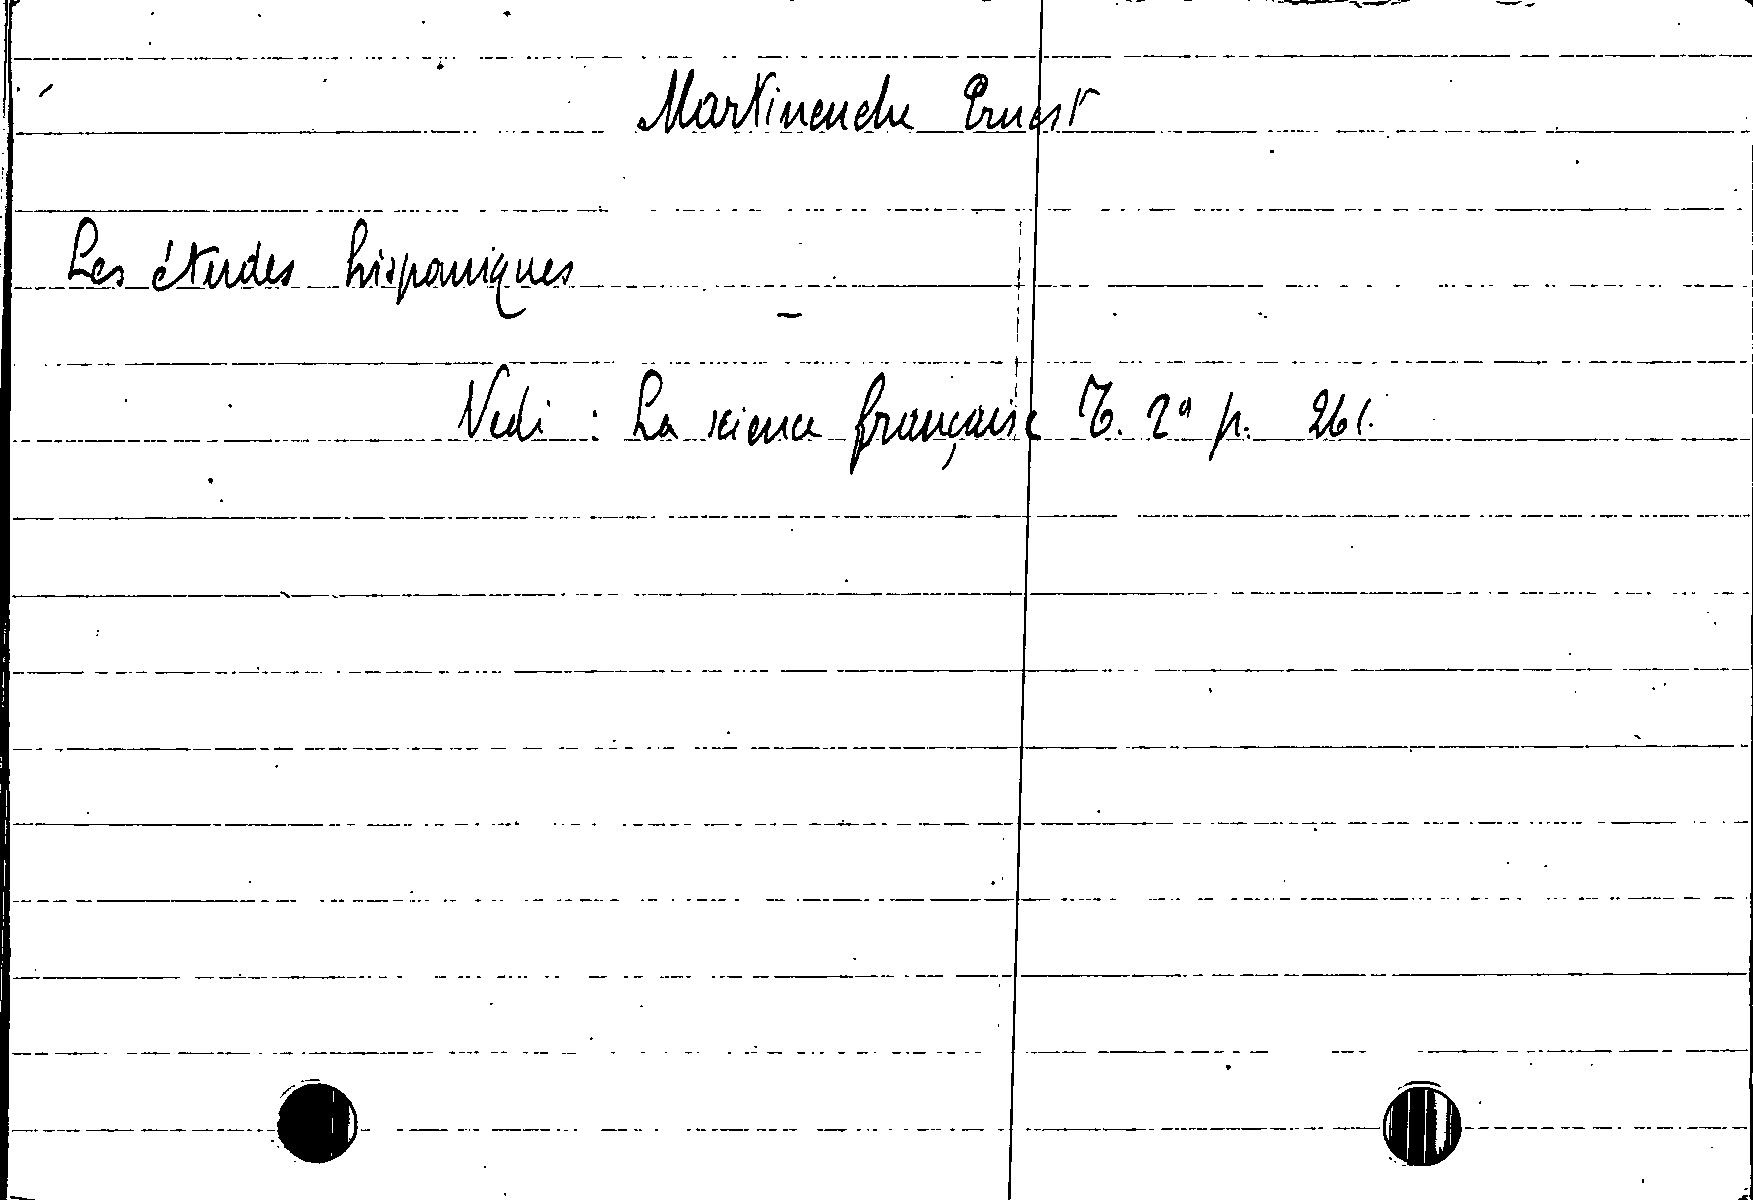 Martinenche Ernest
Les études hispaniques
Vedi : La science française T. 2º p. 261.